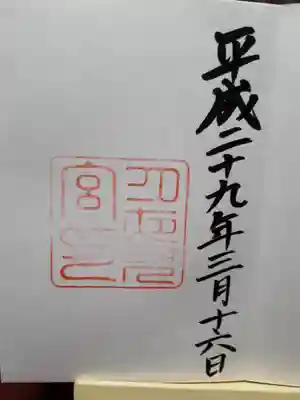 平成二十九年三月十六日